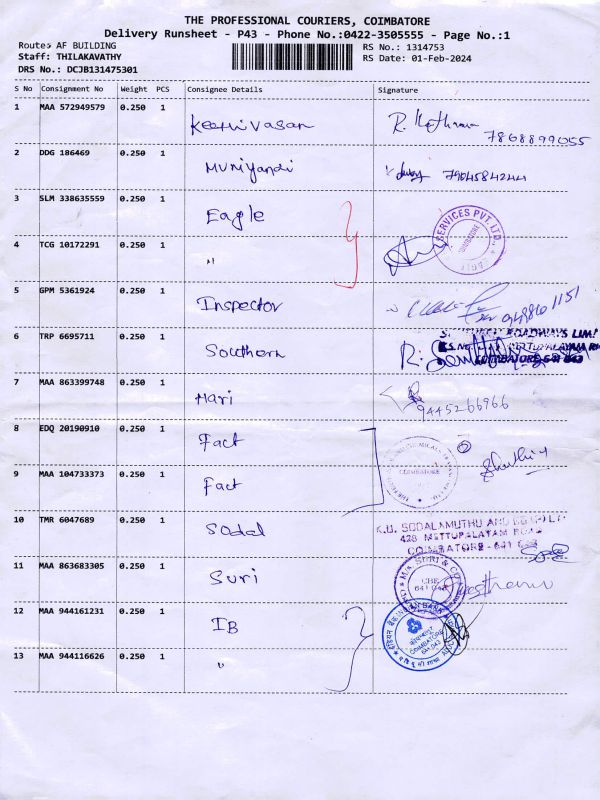 THE PROFESSIONAL COURIERS, COIMBATORE
Delivery Runsheet - P43 - Phone No.:0422-3505555 - Page No.:1
Route: AF BUILDING
RS No.: 1314753
Staff: THILAKAVATHY
RS Date: 01-Feb-2024
DRS No.: DCJB131475301
S No Consignment No Weight PCS Consignee Details Signature
1 MAA 572949579 0.250 1 Keerthivasan 7868899055
2 DDG 186469 0.250 1 Muniyandi 7904584244
3 SLM 338635559 0.250 1 Eagle
SERVICES PVT. LTD.
4 TCG 10172291 0.250 1 "
5 GPM 5361924 0.250 1 Inspector
6 TRP 6695711 0.250 1 Southern
ROADWAYS LIM
COIMBATORE-641 043
7 MAA 863399748 0.250 1 Hari
9445266966
8 EDQ 20190910 0.250 1 Fact
COIMBATORE
9 MAA 104733373 0.250 1 Fact
10 TMR 6047689 0.250 1 Sodal
K.U. SODALAMUTHU AND
428 METTUPALAYAM ROAD
COIMBATORE - 641 043
11 MAA 863683305 0.250 1 Suri
SURI & CO
CBE
641 043
12 MAA 944161231 0.250 1 IB
COIMBATORE
641 043
13 MAA 944116626 0.250 1 "